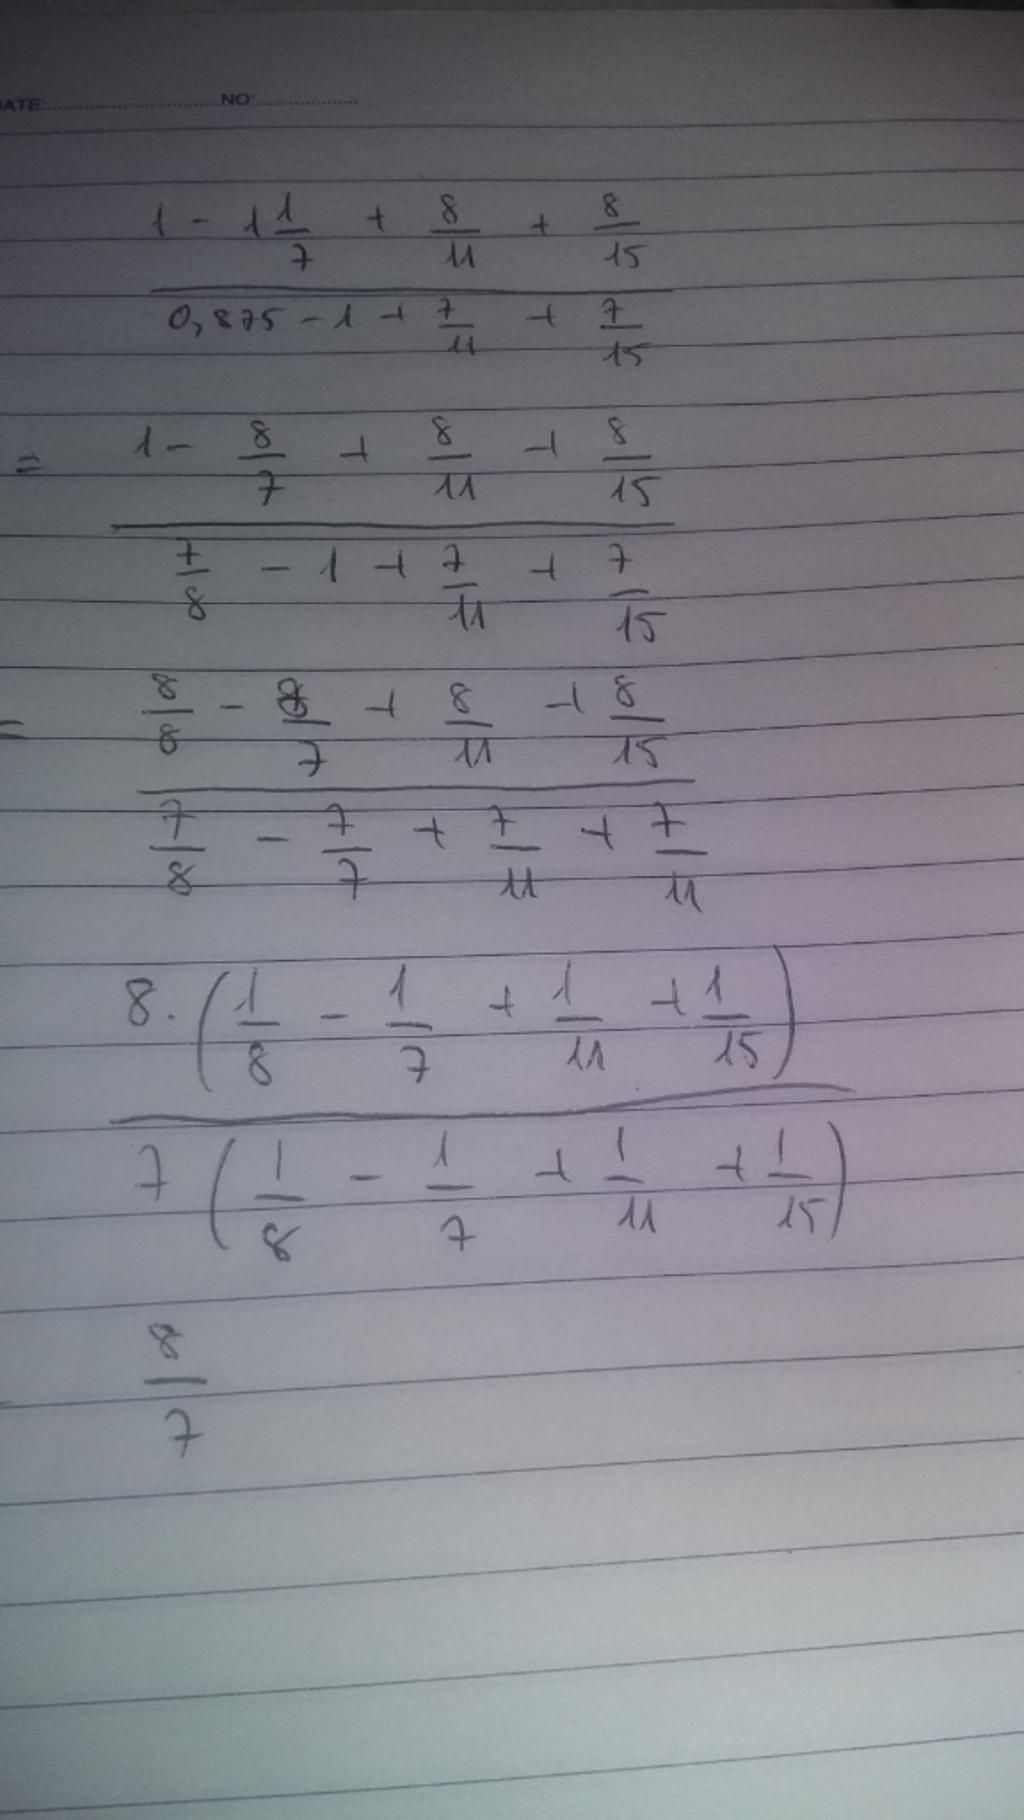 DATE: NO:
1 - 1 1/7 + 8/11 + 8/15
0,875 - 1 + 7/11 + 7/15
= 1 - 8/7 + 8/11 + 8/15
7/8 - 1 + 7/11 + 7/15
= 8/8 - 8/7 + 8/11 + 8/15
7/8 - 7/7 + 7/11 + 7/11
8. (1/8 - 1/7 + 1/11 + 1/15)
7 (1/8 - 1/7 + 1/11 + 1/15)
8/7